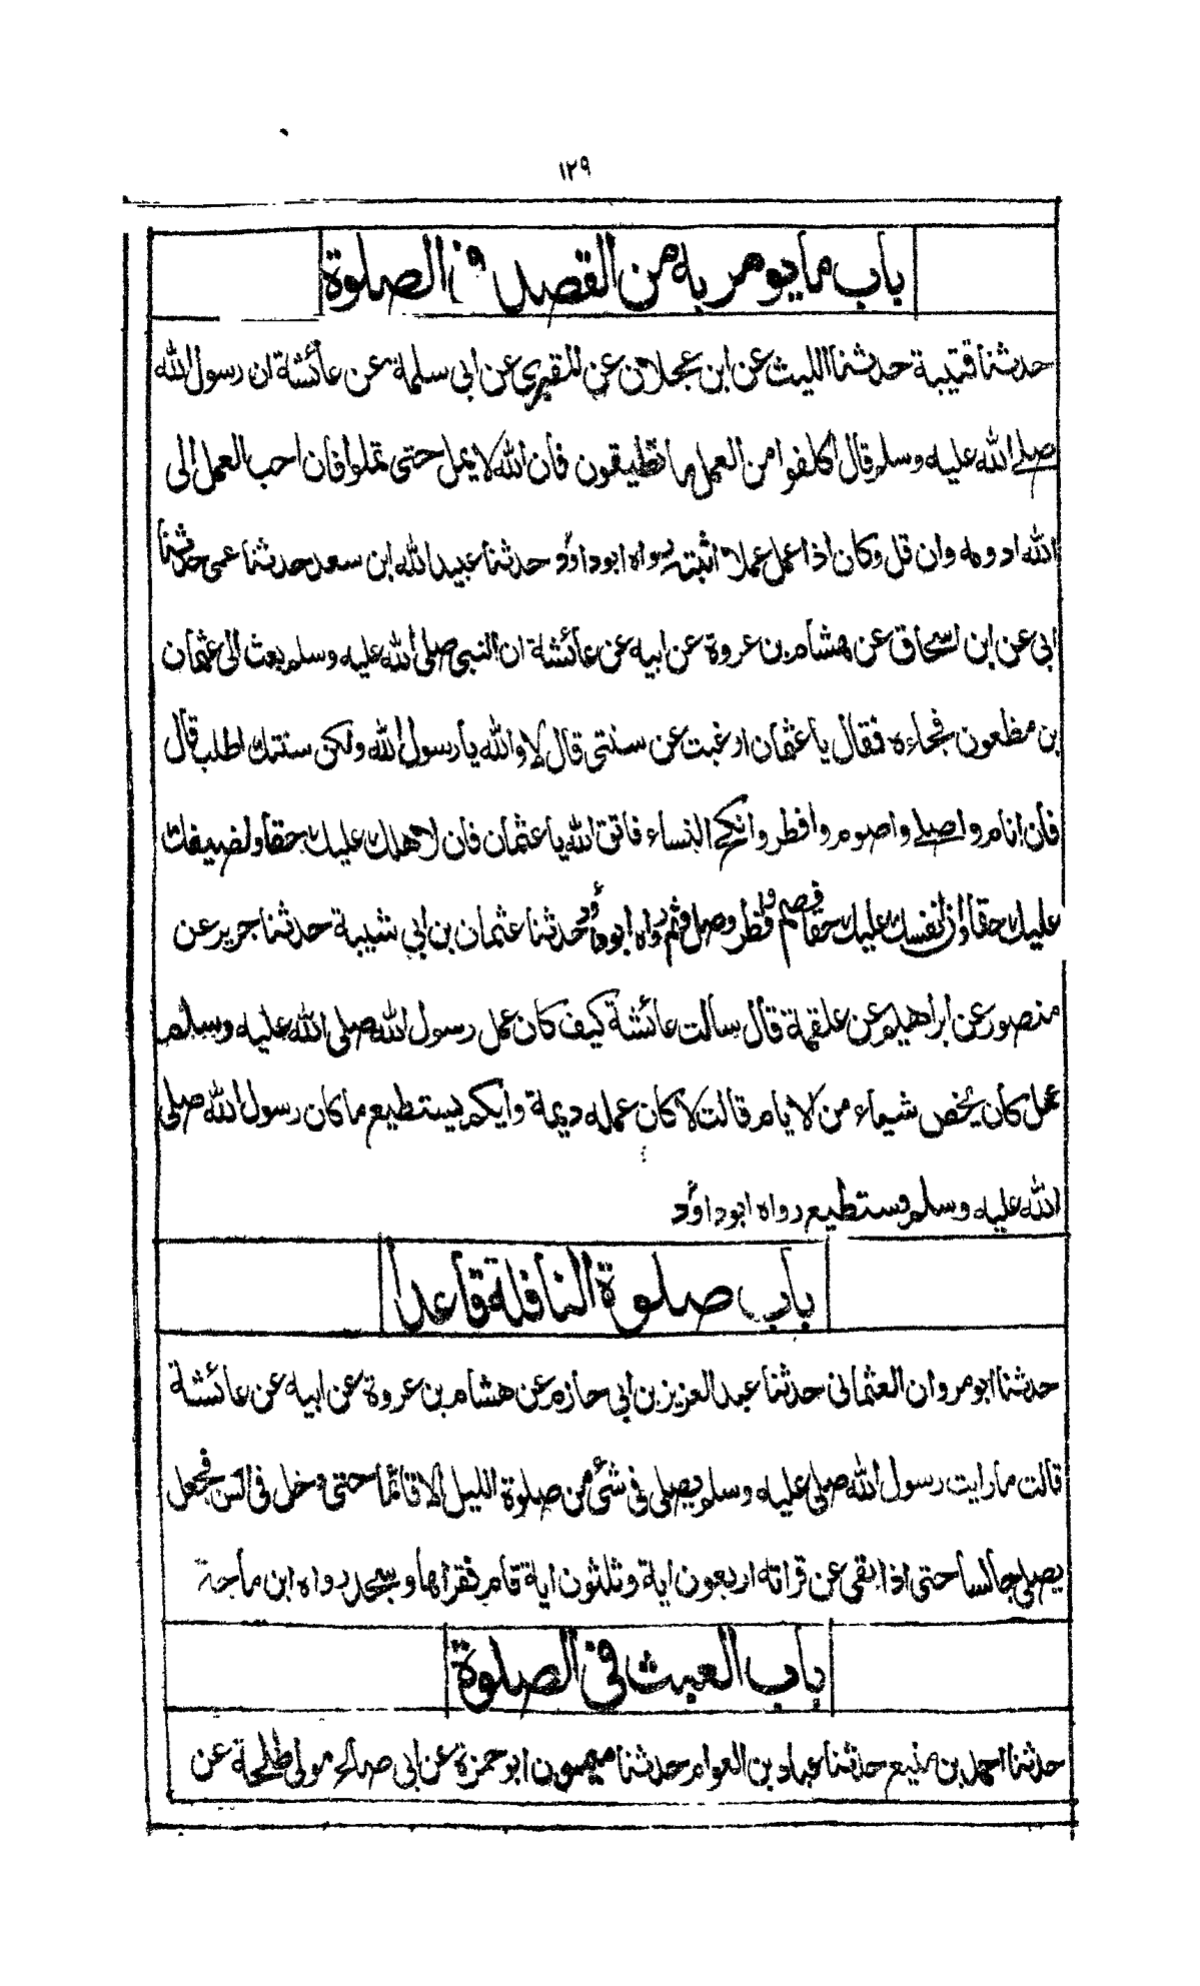 ١٢٩
باب ما يومر به من القصد في الصلوة
حدثنا قتيبة حدثنا الليث عن ابن عجلان عن المقبري عن ابي سلمة عن عائشة ان رسول الله
صلے الله عليه وسلم قال اكلفوا من العمل ما تطيقون فان الله لا يمل حتى تملوا فان احب العمل الى
الله ادومه وان قل وكان اذا عمل عملا اثبته رواه ابوداؤد حدثنا عبيد الله ابن سعد حدثنا عمى حدثنا
ابي عن ابن اسحاق عن هشام بن عروة عن ابيه عن عائشة ان النبي صلى الله عليه وسلم بعث الى عثمان
بن مظعون فجاءه فقال يا عثمان ارغبت عن سنتى قال لا والله يا رسول الله ولكن سنتك اطلب قال
فان انام واصلے واصوم وافطر وانكح النساء فاتق الله يا عثمان فان لاهلك عليك حقا ولضيفك
عليك حقا وان لنفسك عليك حقا فصم وافطر وصل ونم رواه ابوداؤد حدثنا عثمان بن ابي شيبة حدثنا جرير عن
منصور عن ابراهيم عن علقمة قال سالت عائشة كيف كان عمل رسول الله صلى الله عليه وسلم
هل كان يخص شيئاء من لايام قالت لا كان عمله ديمة وايكم يستطيع ما كان رسول الله صلى
الله عليه وسلم يستطيع رواه ابوداؤد
باب صلوة النافلة قاعدا
حدثنا ابو مروان العثمانى حدثنا عبد العزيز بن ابي حازم عن هشام بن عروة عن ابيه عن عائشة
قالت ما رايت رسول الله صلى عليه وسلم يصلى فى شئ من صلوة الليل الا قائما حتى دخل فى السن فجعل
يصلى جالسا حتى اذا بقى عن قراته اربعون اية وثلثون اية قام فقراها وسجد رواه ابن ماجة
باب العبث في الصلوة
حدثنا احمد بن منيع حدثنا عباد بن العوام حدثنا ميمون ابو حمزة عن ابي صالح مولى طلحة عن